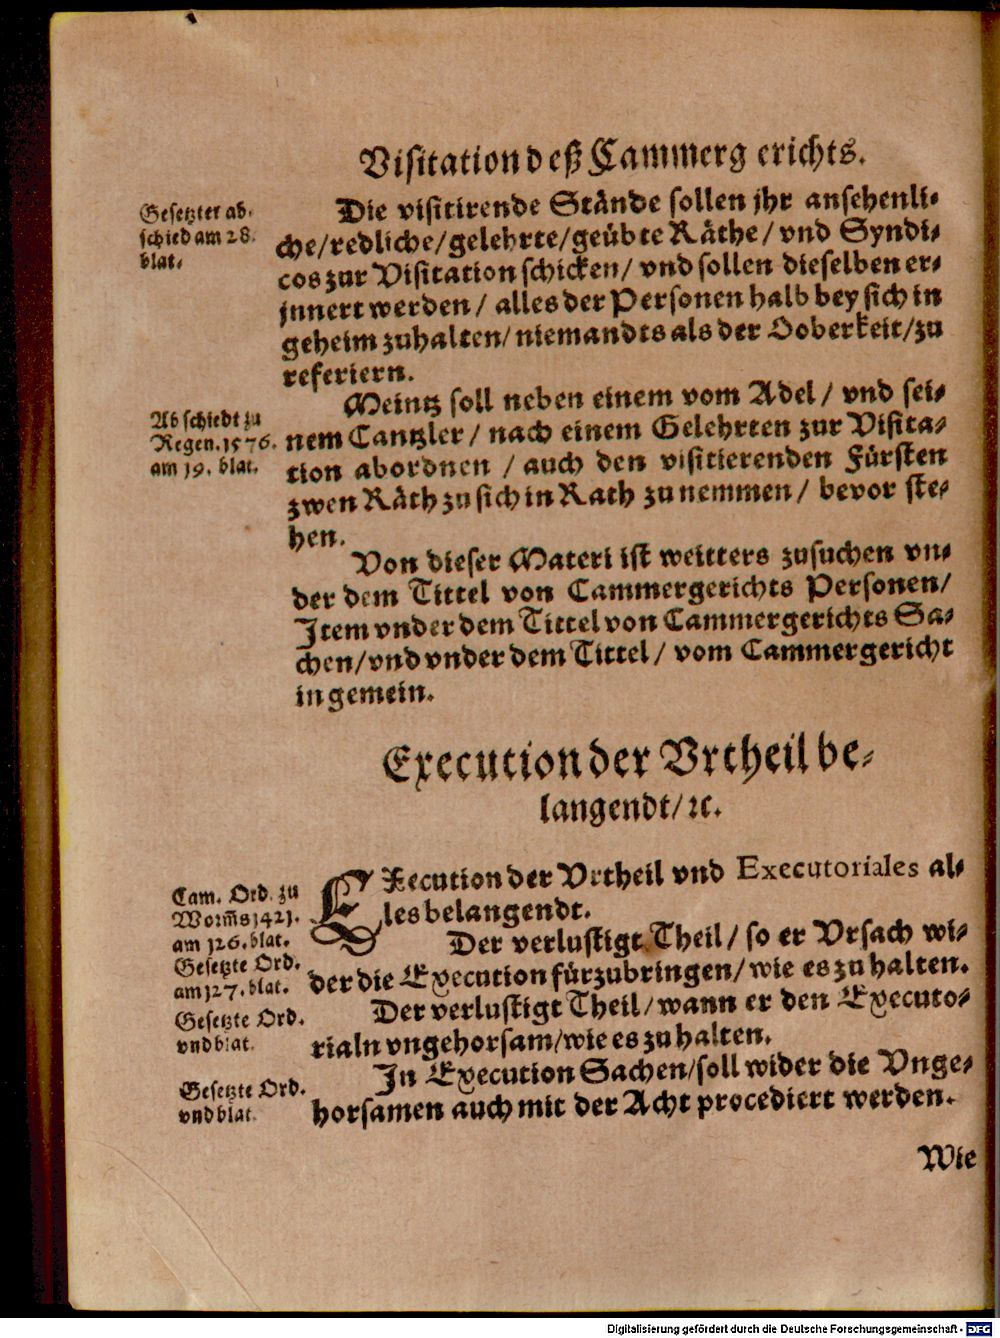 Visitation deß Cammergerichts.
Gesetzter ab-
schied am 28.
blat.
Die visitirende Stände sollen jhr ansehenli-
che/redliche/gelehrte/geübte Räthe/ vnd Syndi-
cos zur Visitation schicken/ vnd sollen dieselben er-
jnnert werden/ alles der Personen halb bey sich in
geheim zuhalten/ niemandts als der Ooberkeit/zu
referiern.
Abschiedt zu
Regen. 1576.
am 19. blat.
Meintz soll neben einem vom Adel/ vnd sei-
nem Cantzler/ nach einem Gelehrten zur Visita-
tion abordnen / auch den visitierenden Fürsten
zwen Räth zu sich in Rath zu nemmen/ bevor ste-
hen.
Von dieser Materi ist weitters zusuchen vn-
der dem Tittel von Cammergerichts Personen/
Item vnder dem Tittel von Cammergerichts Sa-
chen/vnd vnder dem Tittel/ vom Cammergericht
in gemein.
Execution der Vrtheil be-
langendt/ꝛc.
Cam. Ord. zu
Worm̃s 1421.
am 126. blat.
Gesetzte Ord.
am 127. blat.
Gesetzte Ord.
vnd blat.
Gesetzte Ord.
vnd blat.
EXecution der Vrtheil vnd Executoriales al-
les belangendt.
Der verlustigt Theil/ so er Vrsach wi-
der die Execution fürzubringen/ wie es zu halten.
Der verlustigt Theil/wann er den Executo-
rialn vngehorsam/wie es zu halten.
In Execution Sachen/soll wider die Vnge-
horsamen auch mit der Acht procediert werden.
Wie
Digitalisierung gefördert durch die Deutsche Forschungsgemeinschaft - DFG